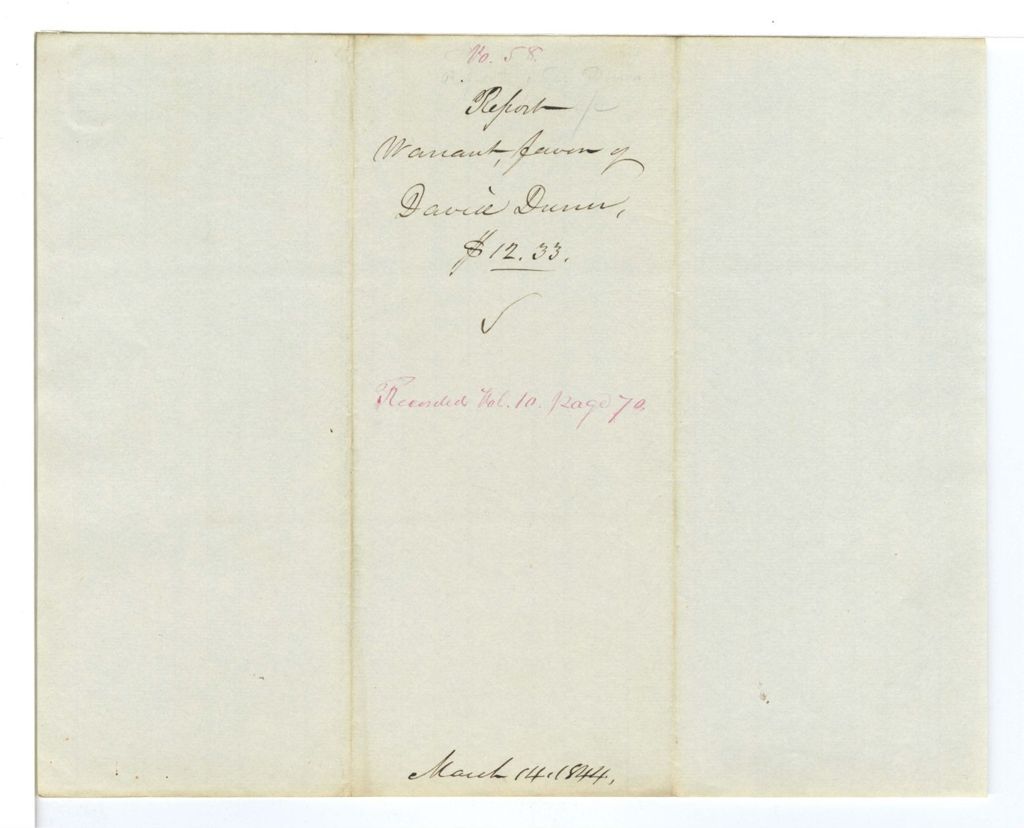 No. 58.
Report
Warrant, favor of
David
$12.33.
Recorded Vol. 10. page 70.
March 14, 1844,